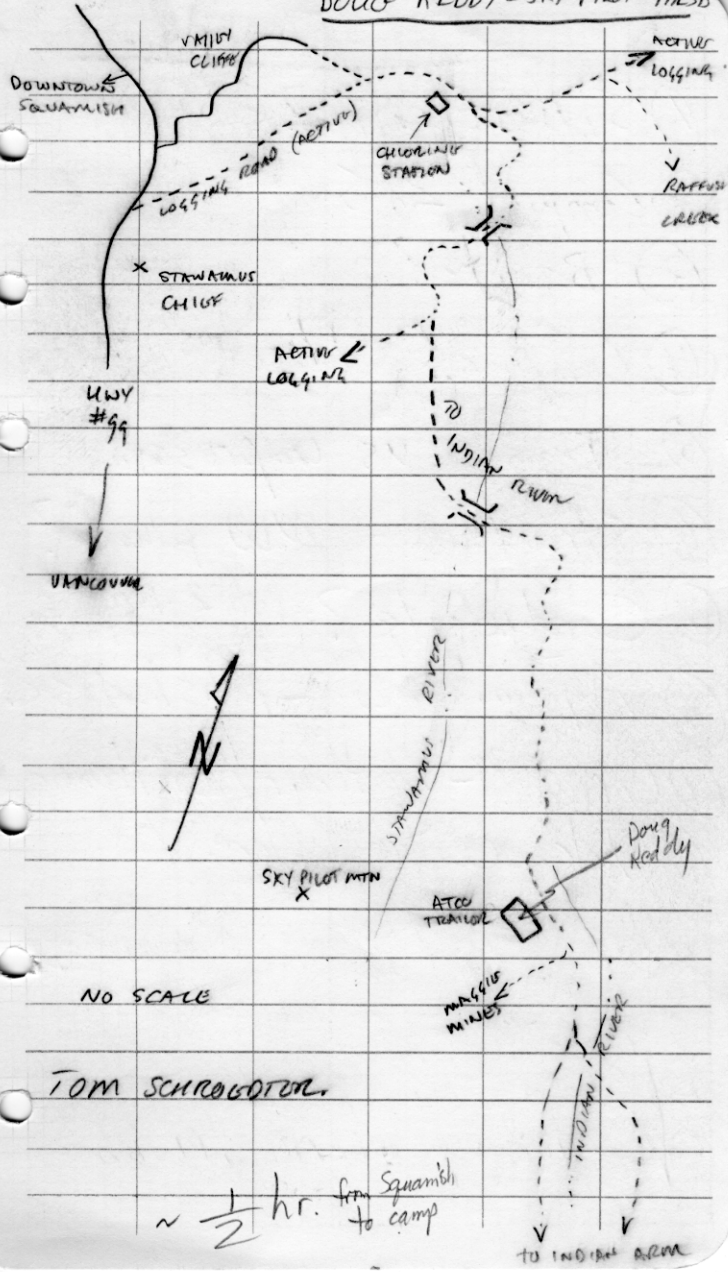 DOUG REDDY - SKY PILOT
VALLEY
CLIFFE
ACTIVE
LOGGING
DOWNTOWN
SQUAMISH
LOGGING ROAD (ACTIVE)
CHLORINE
STATION
RAFFUSE
CREEK
STAWAMUS
CHIEF
ACTIVE
LOGGING
HWY
#99
TO
INDIAN RIVER
VANCOUVER
N
STAWAMUS RIVER
Doug
Reddy
SKY PILOT MTN
ATCO
TRAILOR
MAGGIE
MINES
NO SCALE
INDIAN RIVER
TOM SCHROEDTER
~ 1/2 hr. from Squamish
to camp
TO INDIAN ARM